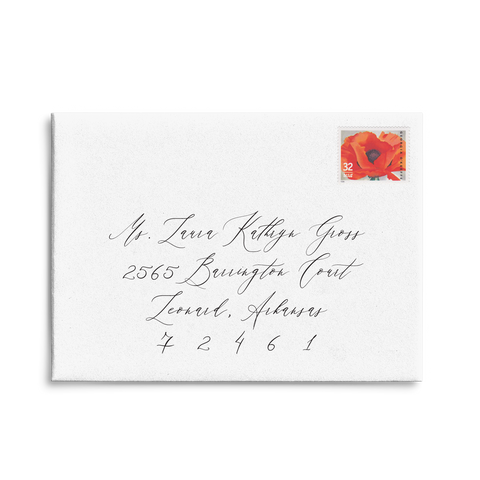 32
Ms. Laura Kathryn Gross
2565 Barrington Court
Leonard, Arkansas
7 2 4 6 1